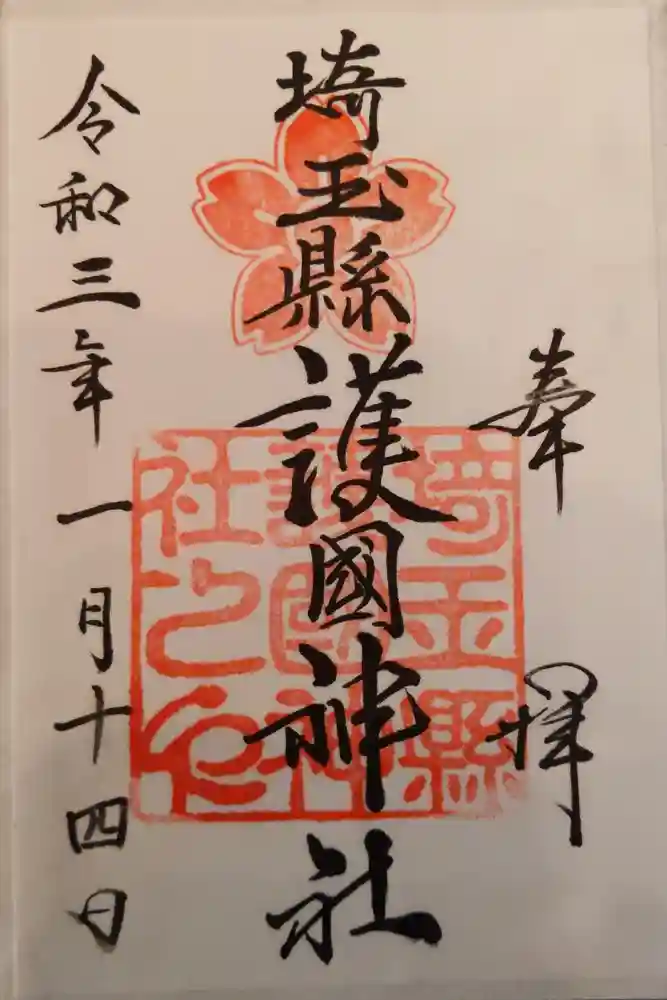 奉拝
埼玉縣護國神社
埼玉縣
護國神
社之印
令和三年一月十四日